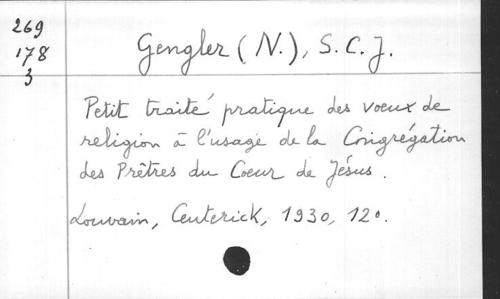 269
178
3
Gengler (N.), S.C.J.
Petit traité pratique des voeux de
religion à l'usage de la Congrégation
des Prêtres du Coeur de Jésus.
Louvain, Ceuterick, 1930, 12°.